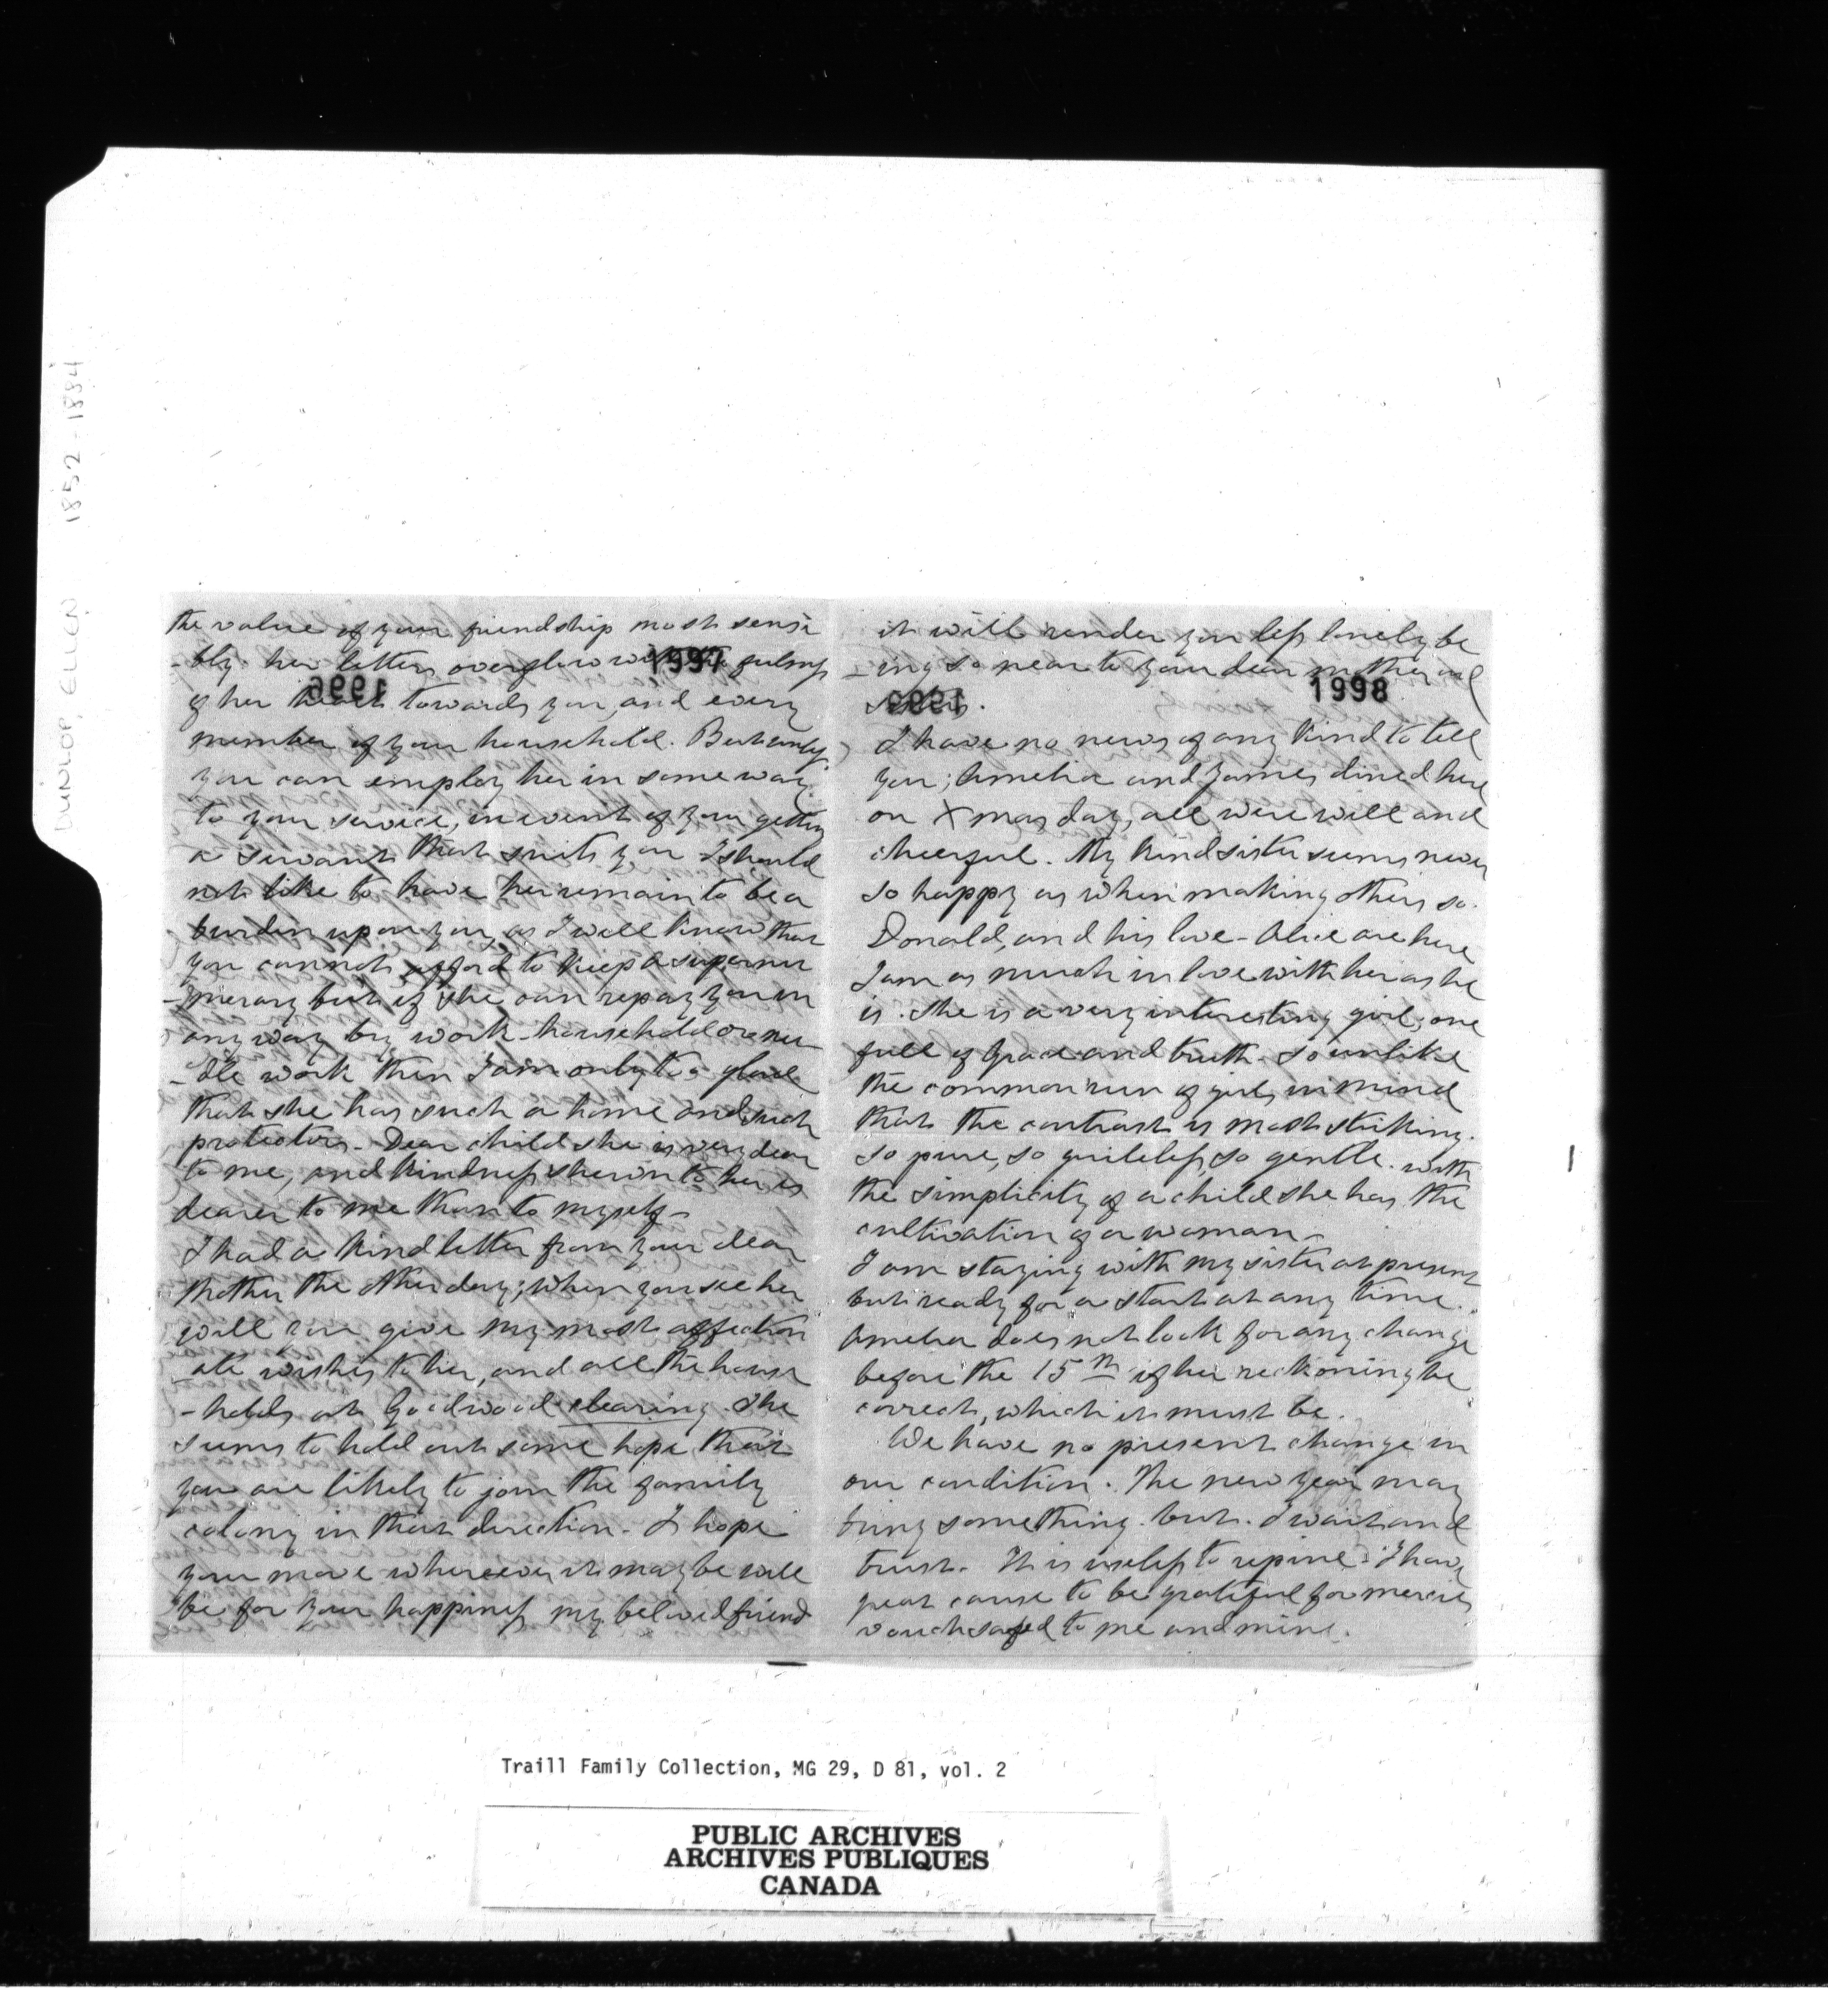 DUNLOP, ELLEN 1852-1884
the value of your friendship most sensi
-bly. her letters overflow with the
1997
of her heart towards you, and every
member of your household. But
you can employ her in some way
to your service, in event of your getting
a servant that suits you I should
not like to have her remain to be a
burden upon you, as I well know that
you cannot afford to keep a supernu
-merary but if she can repay you in
any way by work household or nee
-dle work then I am only too glad
that she has such a home and such
protectors - Dear child she is very dear
to me, and kindness shewn to her is
dearer to me than to myself -
I had a kind letter from your dear
Mother the other day; when you see her
will you give my most affection
ate wishes to her, and all the house
-holds at Goodwood clearing. She
seems to hold out some hope that
you are likely to join the family
colony in that direction - I hope
your move wherever it may be will
be for your happiness my beloved friend
it will render you less lonely be
-ing so near to your dear mother and
1998
sisters.
I have no news of any kind to tell
you; Amelia and James dined here
on Xmas day, all were well and
cheerful. My kind sister seems never
so happy as when making others so.
Donald, and his love - Alice are here
I am as much in love with her as he
is. She is a very interesting girl, one
full of grace and truth - so unlike
the common run of girls in mind
that the contrast is most striking.
so pure, so guileless, so gentle. with
the simplicity of a child she has the
cultivation of a woman -
I am staying with my sister at present
but ready for a start at any time.
Amelia does not look for any change
before the 15th if her reckoning be
correct, which it must be.
We have no present change in
our condition. The new year may
bring something. but. I wait and
trust. It is useless to repine. I have
great cause to be grateful for mercies
vouchsafed to me and mine.
Traill Family Collection, MG 29, D 81, vol. 2
PUBLIC ARCHIVES
ARCHIVES PUBLIQUES
CANADA